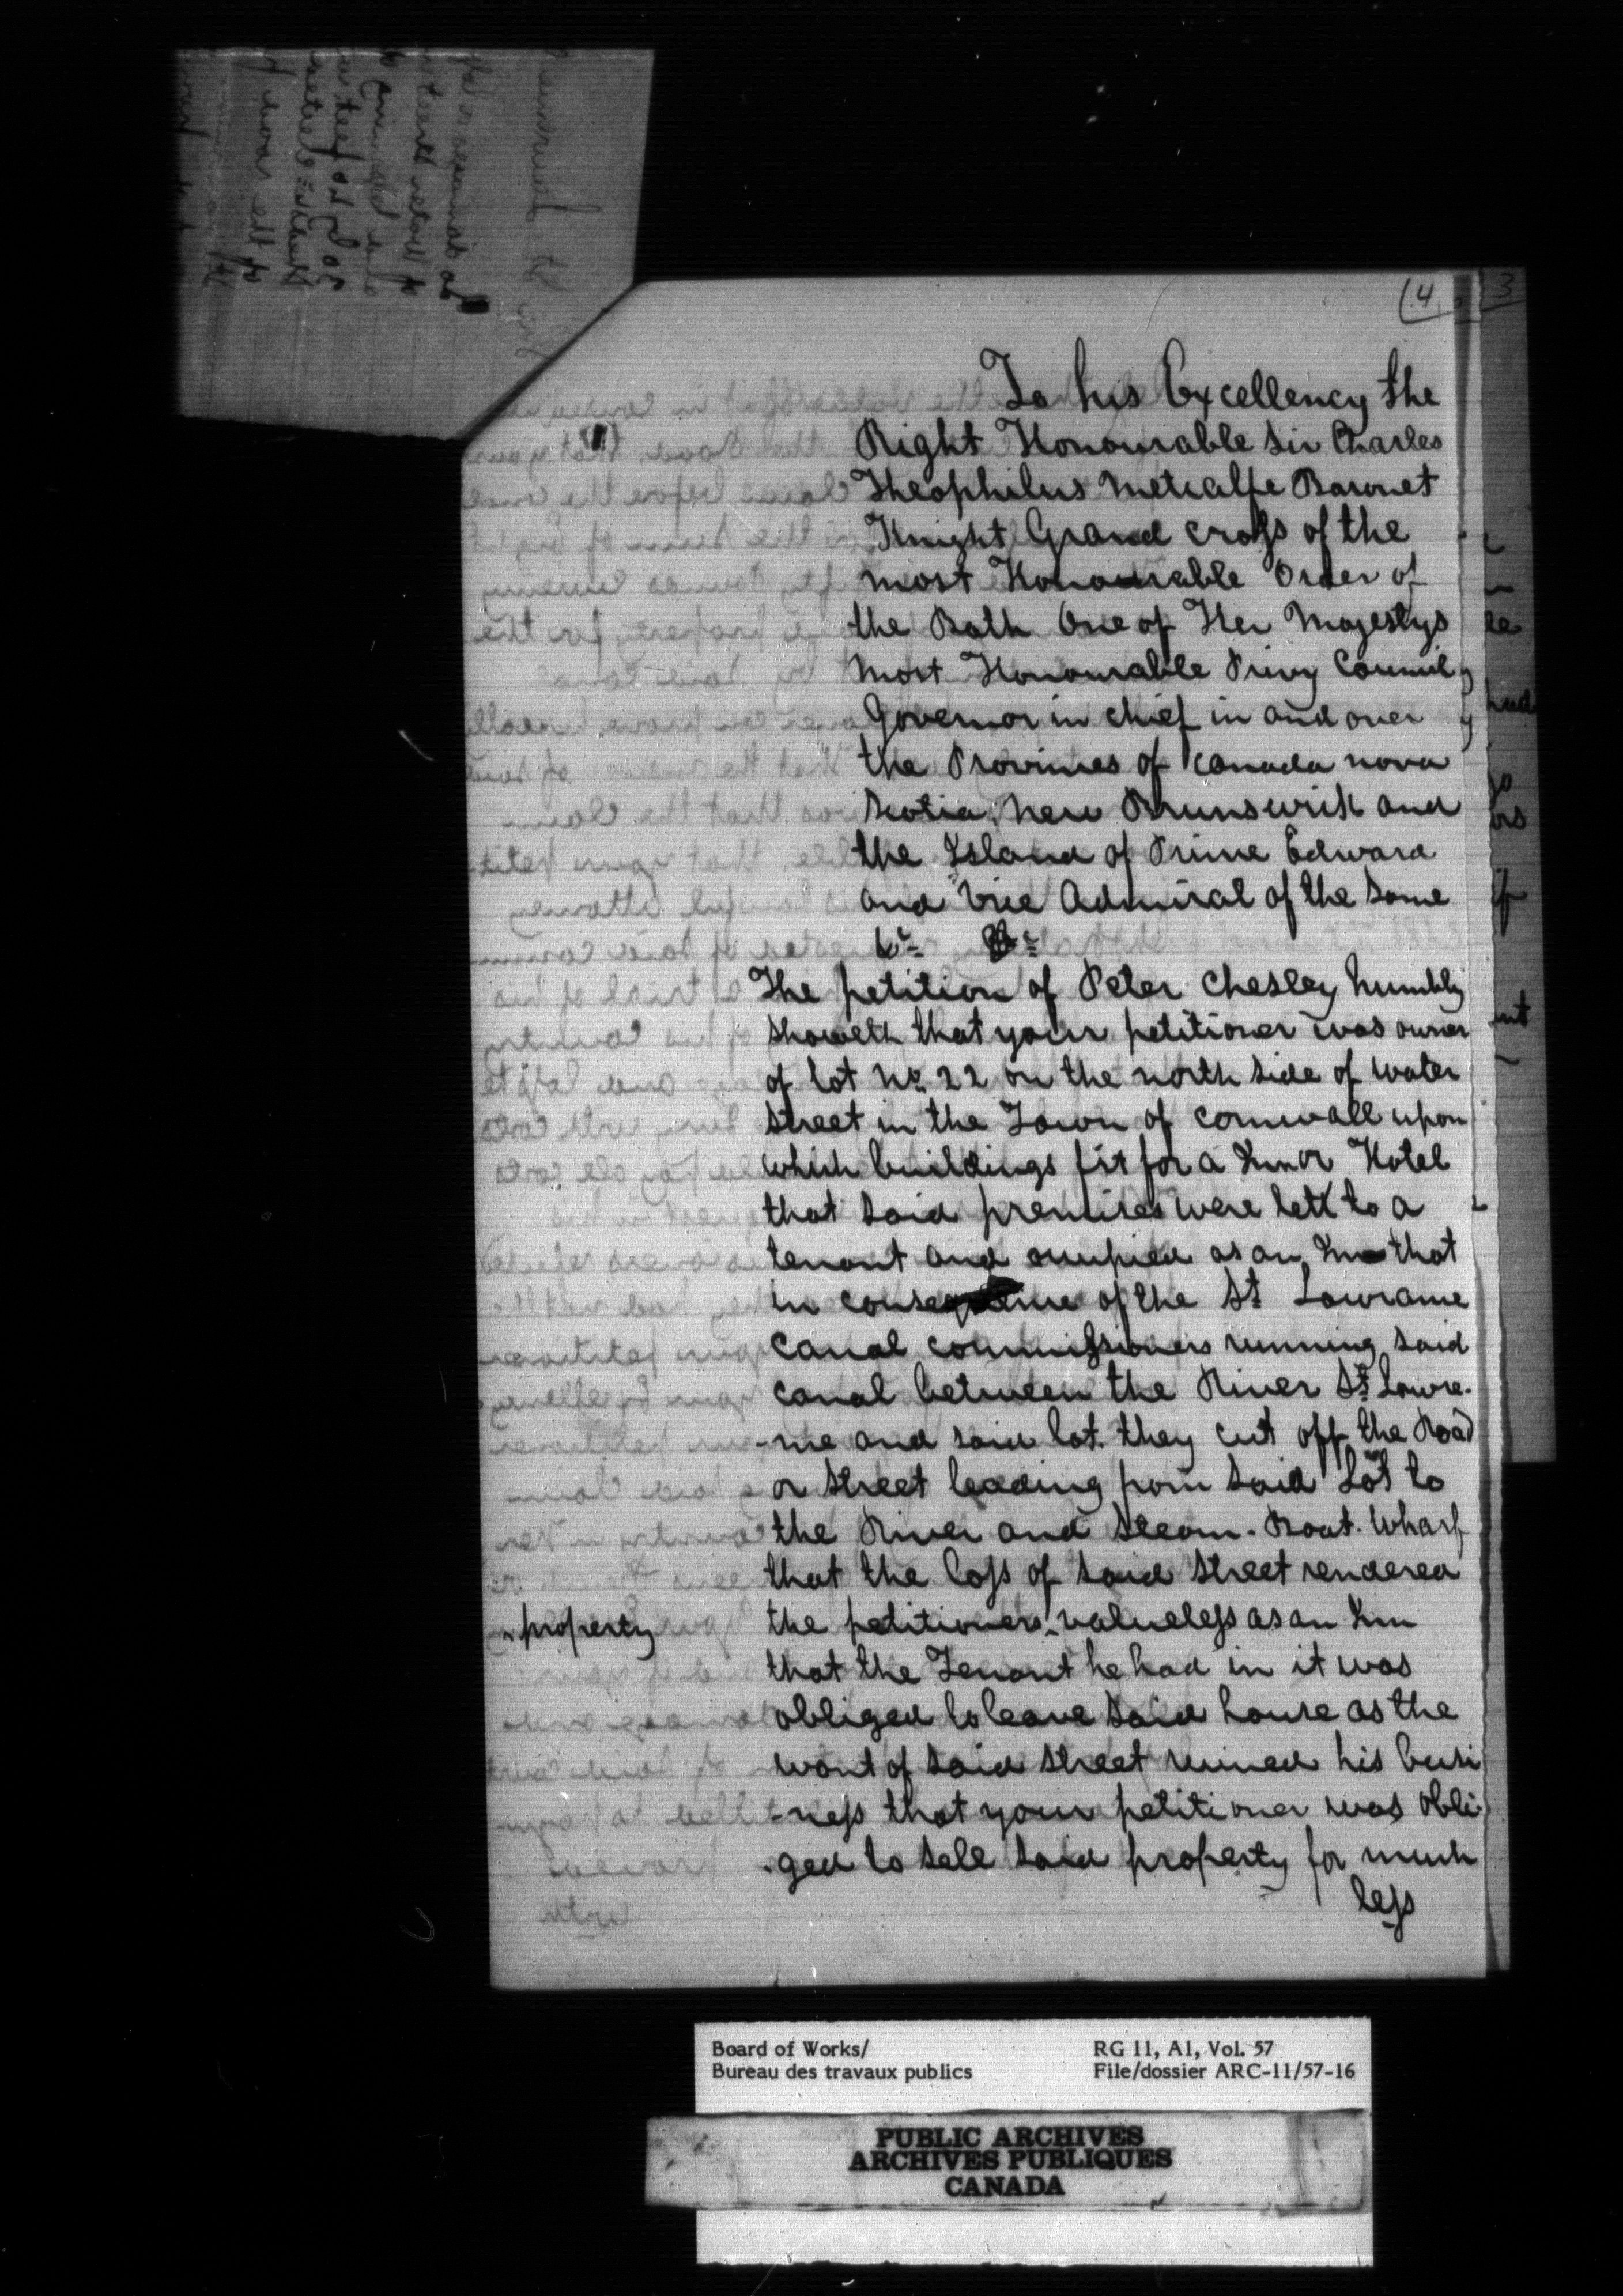 (4
3
To his Excellency the
Right Honourable Sir Charles
Theophilus Metcalfe Baronet
Knight Grand Cross of the
most Honourable Order of
the Bath One of Her Majestys
Most Honourable Privy Council
Governor in chief in and over
the Provinces of Canada nova
Scotia, New Brunswick and
the Island of Prince Edward
and Vice Admiral of the same
The petition of Peter Chesley humbly
Showeth that your petitioner was owner
of lot No. 22 on the north side of water
street in the Town of Cornwall upon
which buildings fit for a Inn or Hotel
that said premises were lett to a
tenant and occupied as an Inn that
in consequence of the St Lawrance
Canal commissioners running said
canal between the River St Lawre-
-nce and said lot. they cut off the Road
or street leading from said Lot to
the River and Steam. Boat. Wharf
that the loss of said street rendered
the petitioners ^ valueless as an Inn
^ property
that the Tenant he had in it was
obliged to leave said house as the
want of said street ruined his busi
-ness that your petitioner was obli-
-ged to sell said property for much
less
Board of Works/
Bureau des travaux publics
RG 11, A1, Vol. 57
File/dossier ARC-11/57-16
PUBLIC ARCHIVES
ARCHIVES PUBLIQUES
CANADA